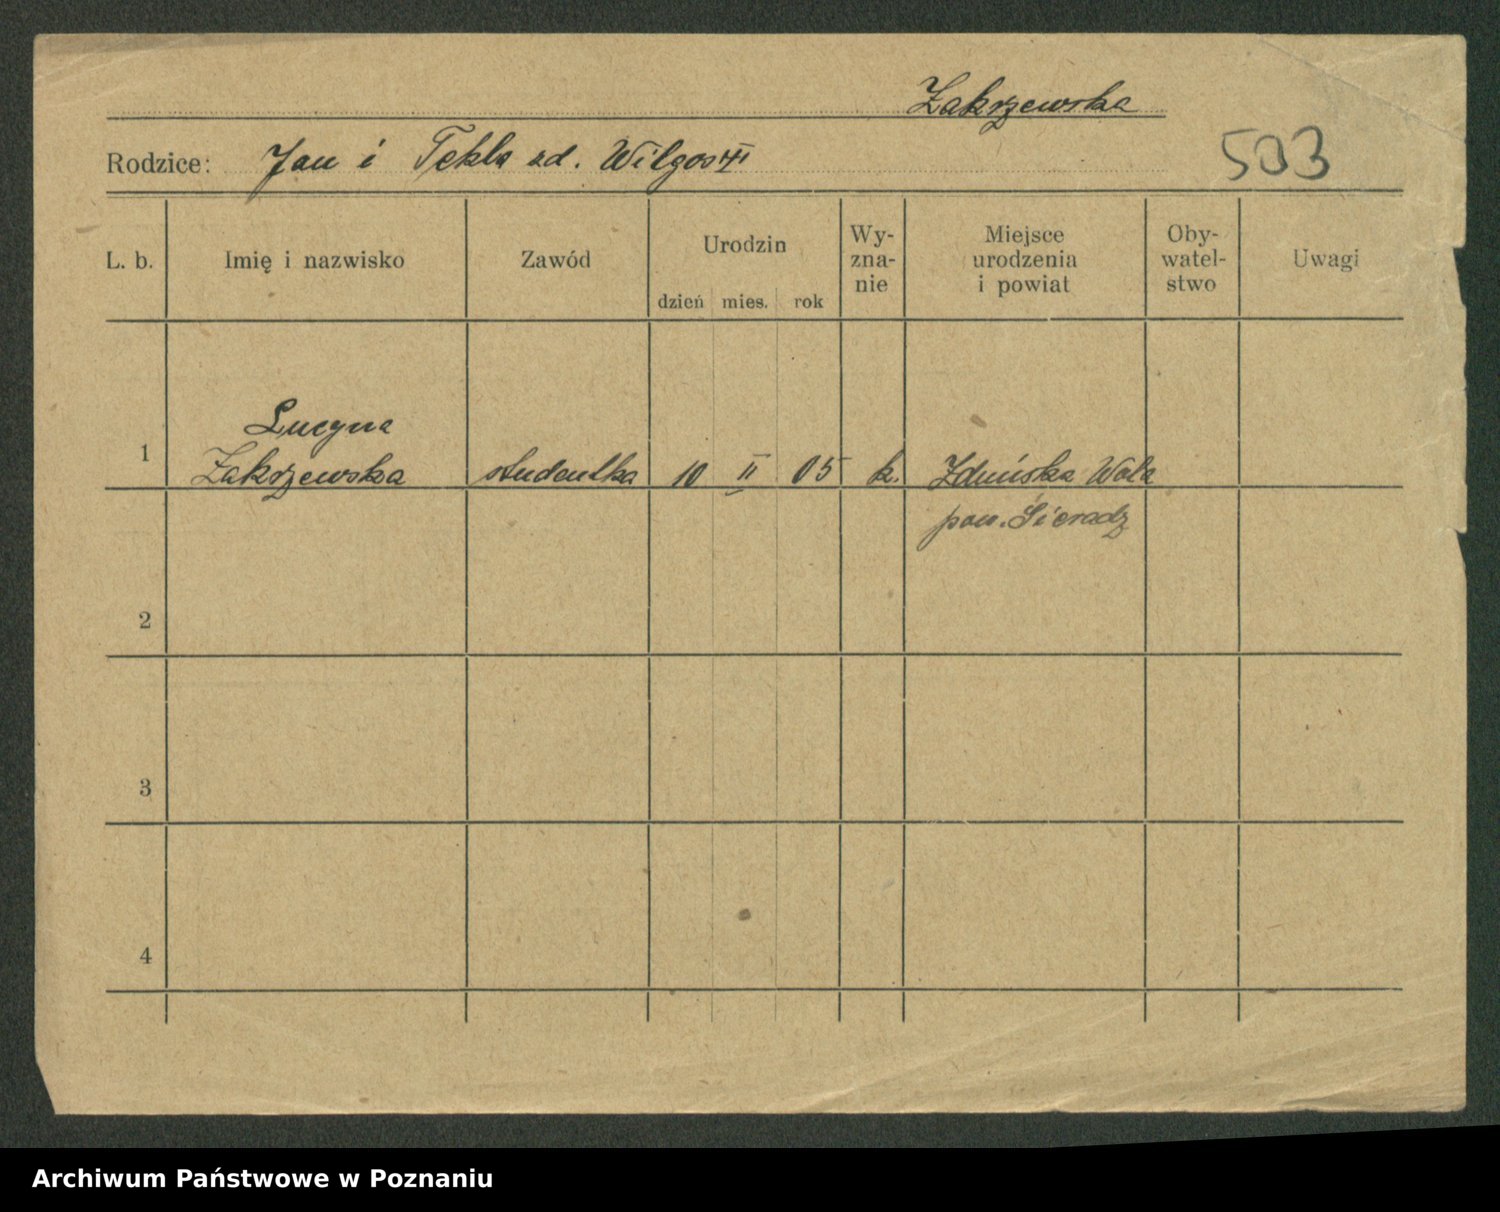 Zakrzewska
Rodzice: Jan i Tekla zd.
503
L. b.
Imię i nazwisko
Zawód
Urodzin
dzień mies. rok
Wy-
zna-
nie
Miejsce
urodzenia
i powiat
Oby-
watel-
stwo
Uwagi
1
Lucyna
Zakrzewska
studentka
10 II 05
k.
Zduńska Wola
pow. Sieradz
2
3
4
Archiwum Państwowe w Poznaniu